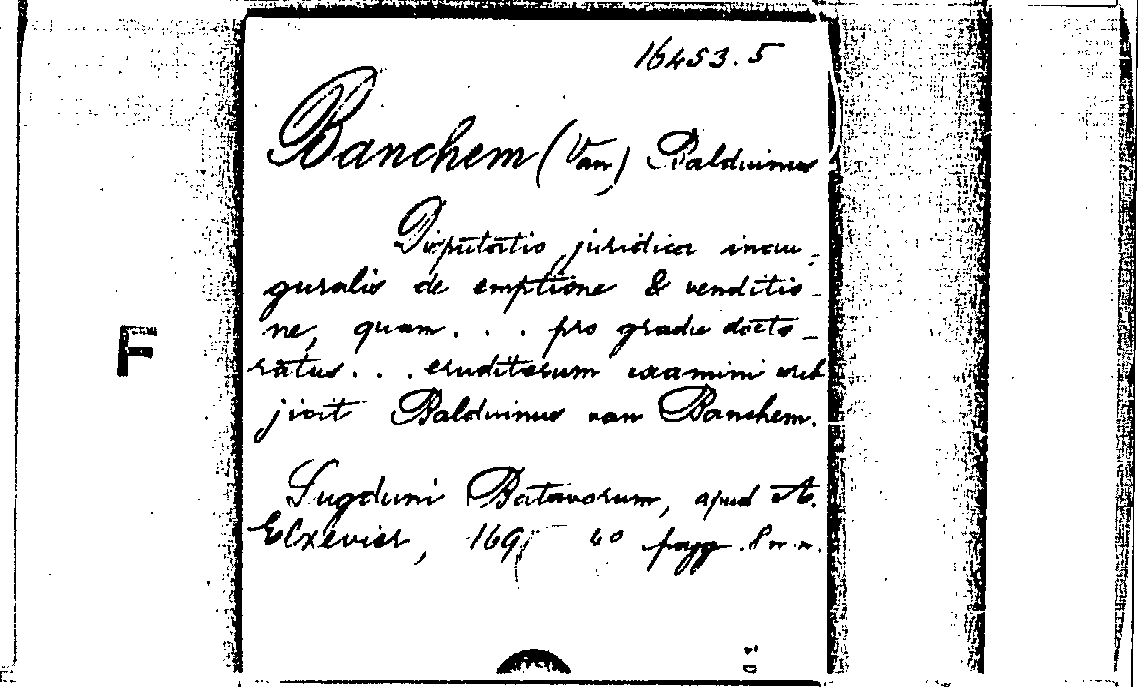 16453.5
Banchem (Van) Balduinus
Disputatio juridica inau-
guralis de emptione & venditio-
ne, quam... pro gradu docto-
ratus... eruditorum examini sub
jicit Balduinus van Banchem.
F
Lugduni Batavorum, apud A.
Elzevier, 169 4° pagg. 8 n. n.